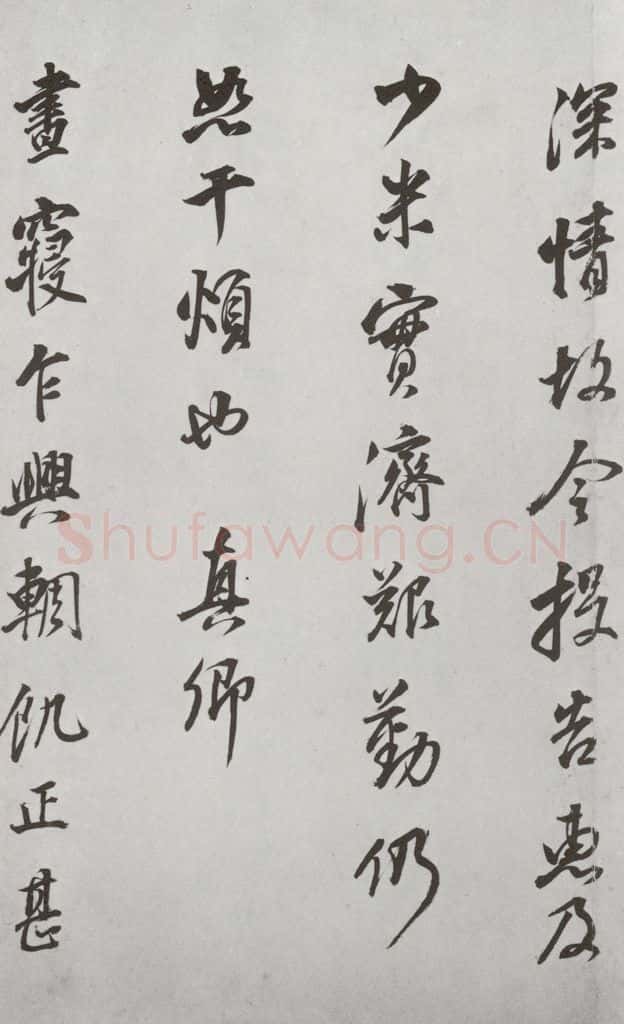 深情故令投告惠及
少米實濟艱勤仍
恕干煩也 真卿
晝寢乍興輖飢正甚
Shufawang.CN